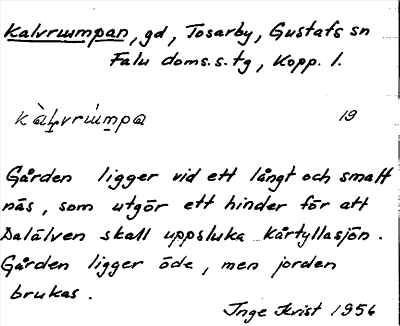 Kalvrumpan, gd, Tosarby, Gustafs sn
Falu doms.s.tg, Kopp. l.
kàḷvrúmpa 19
Gården ligger vid ett långt och smalt
näs, som utgör ett hinder för att
Dalälven skall uppsluka Kårtyllasjön.
Gården ligger öde, men jorden
brukas.
Inge Kvist 1956